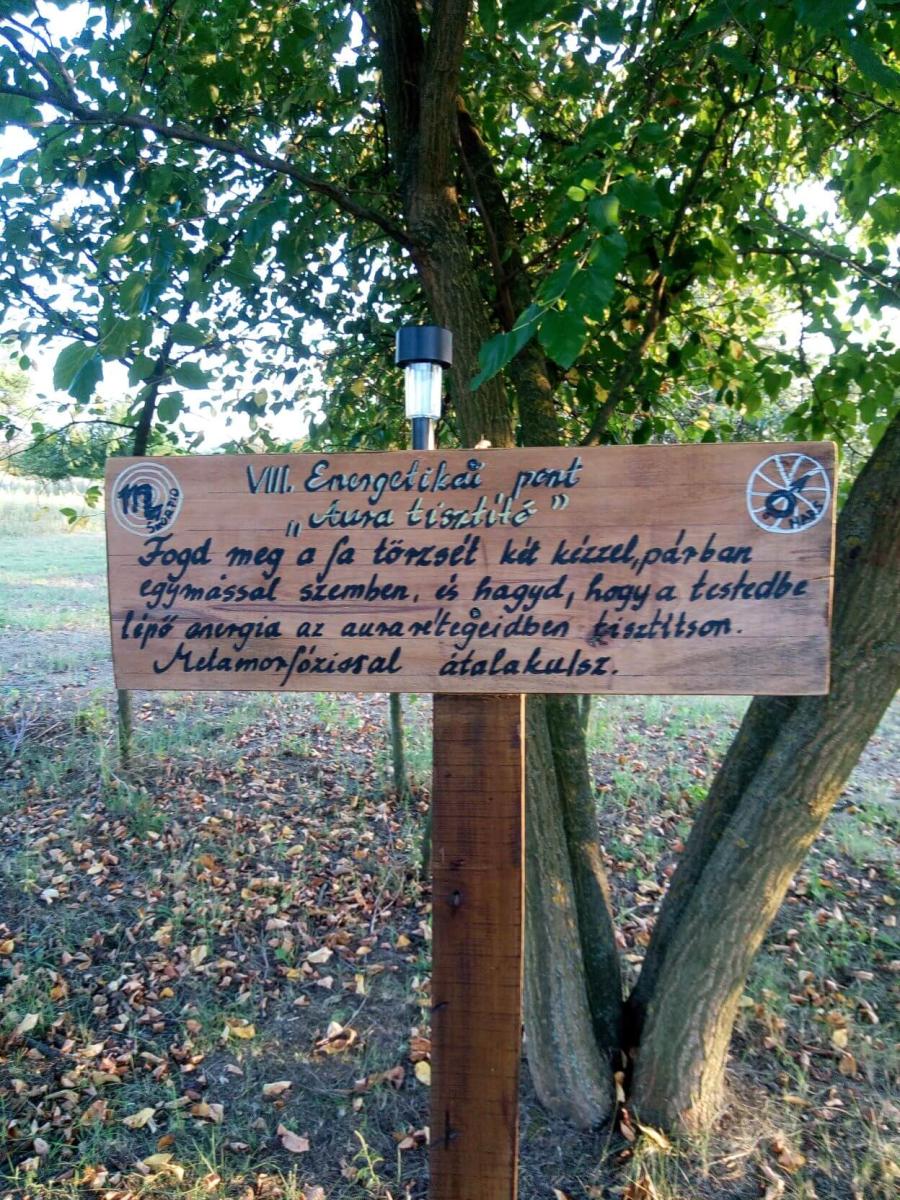 VIII. Energetikai pont
„Aura tisztító”
SKORPIO
MARS
Fogd meg a fa törzsét két kézzel, párban
egymással szemben, és hagyd, hogy a testedbe
lépő energia az aurarétegeidben tisztítson.
Metamorfózissal átalakulsz.